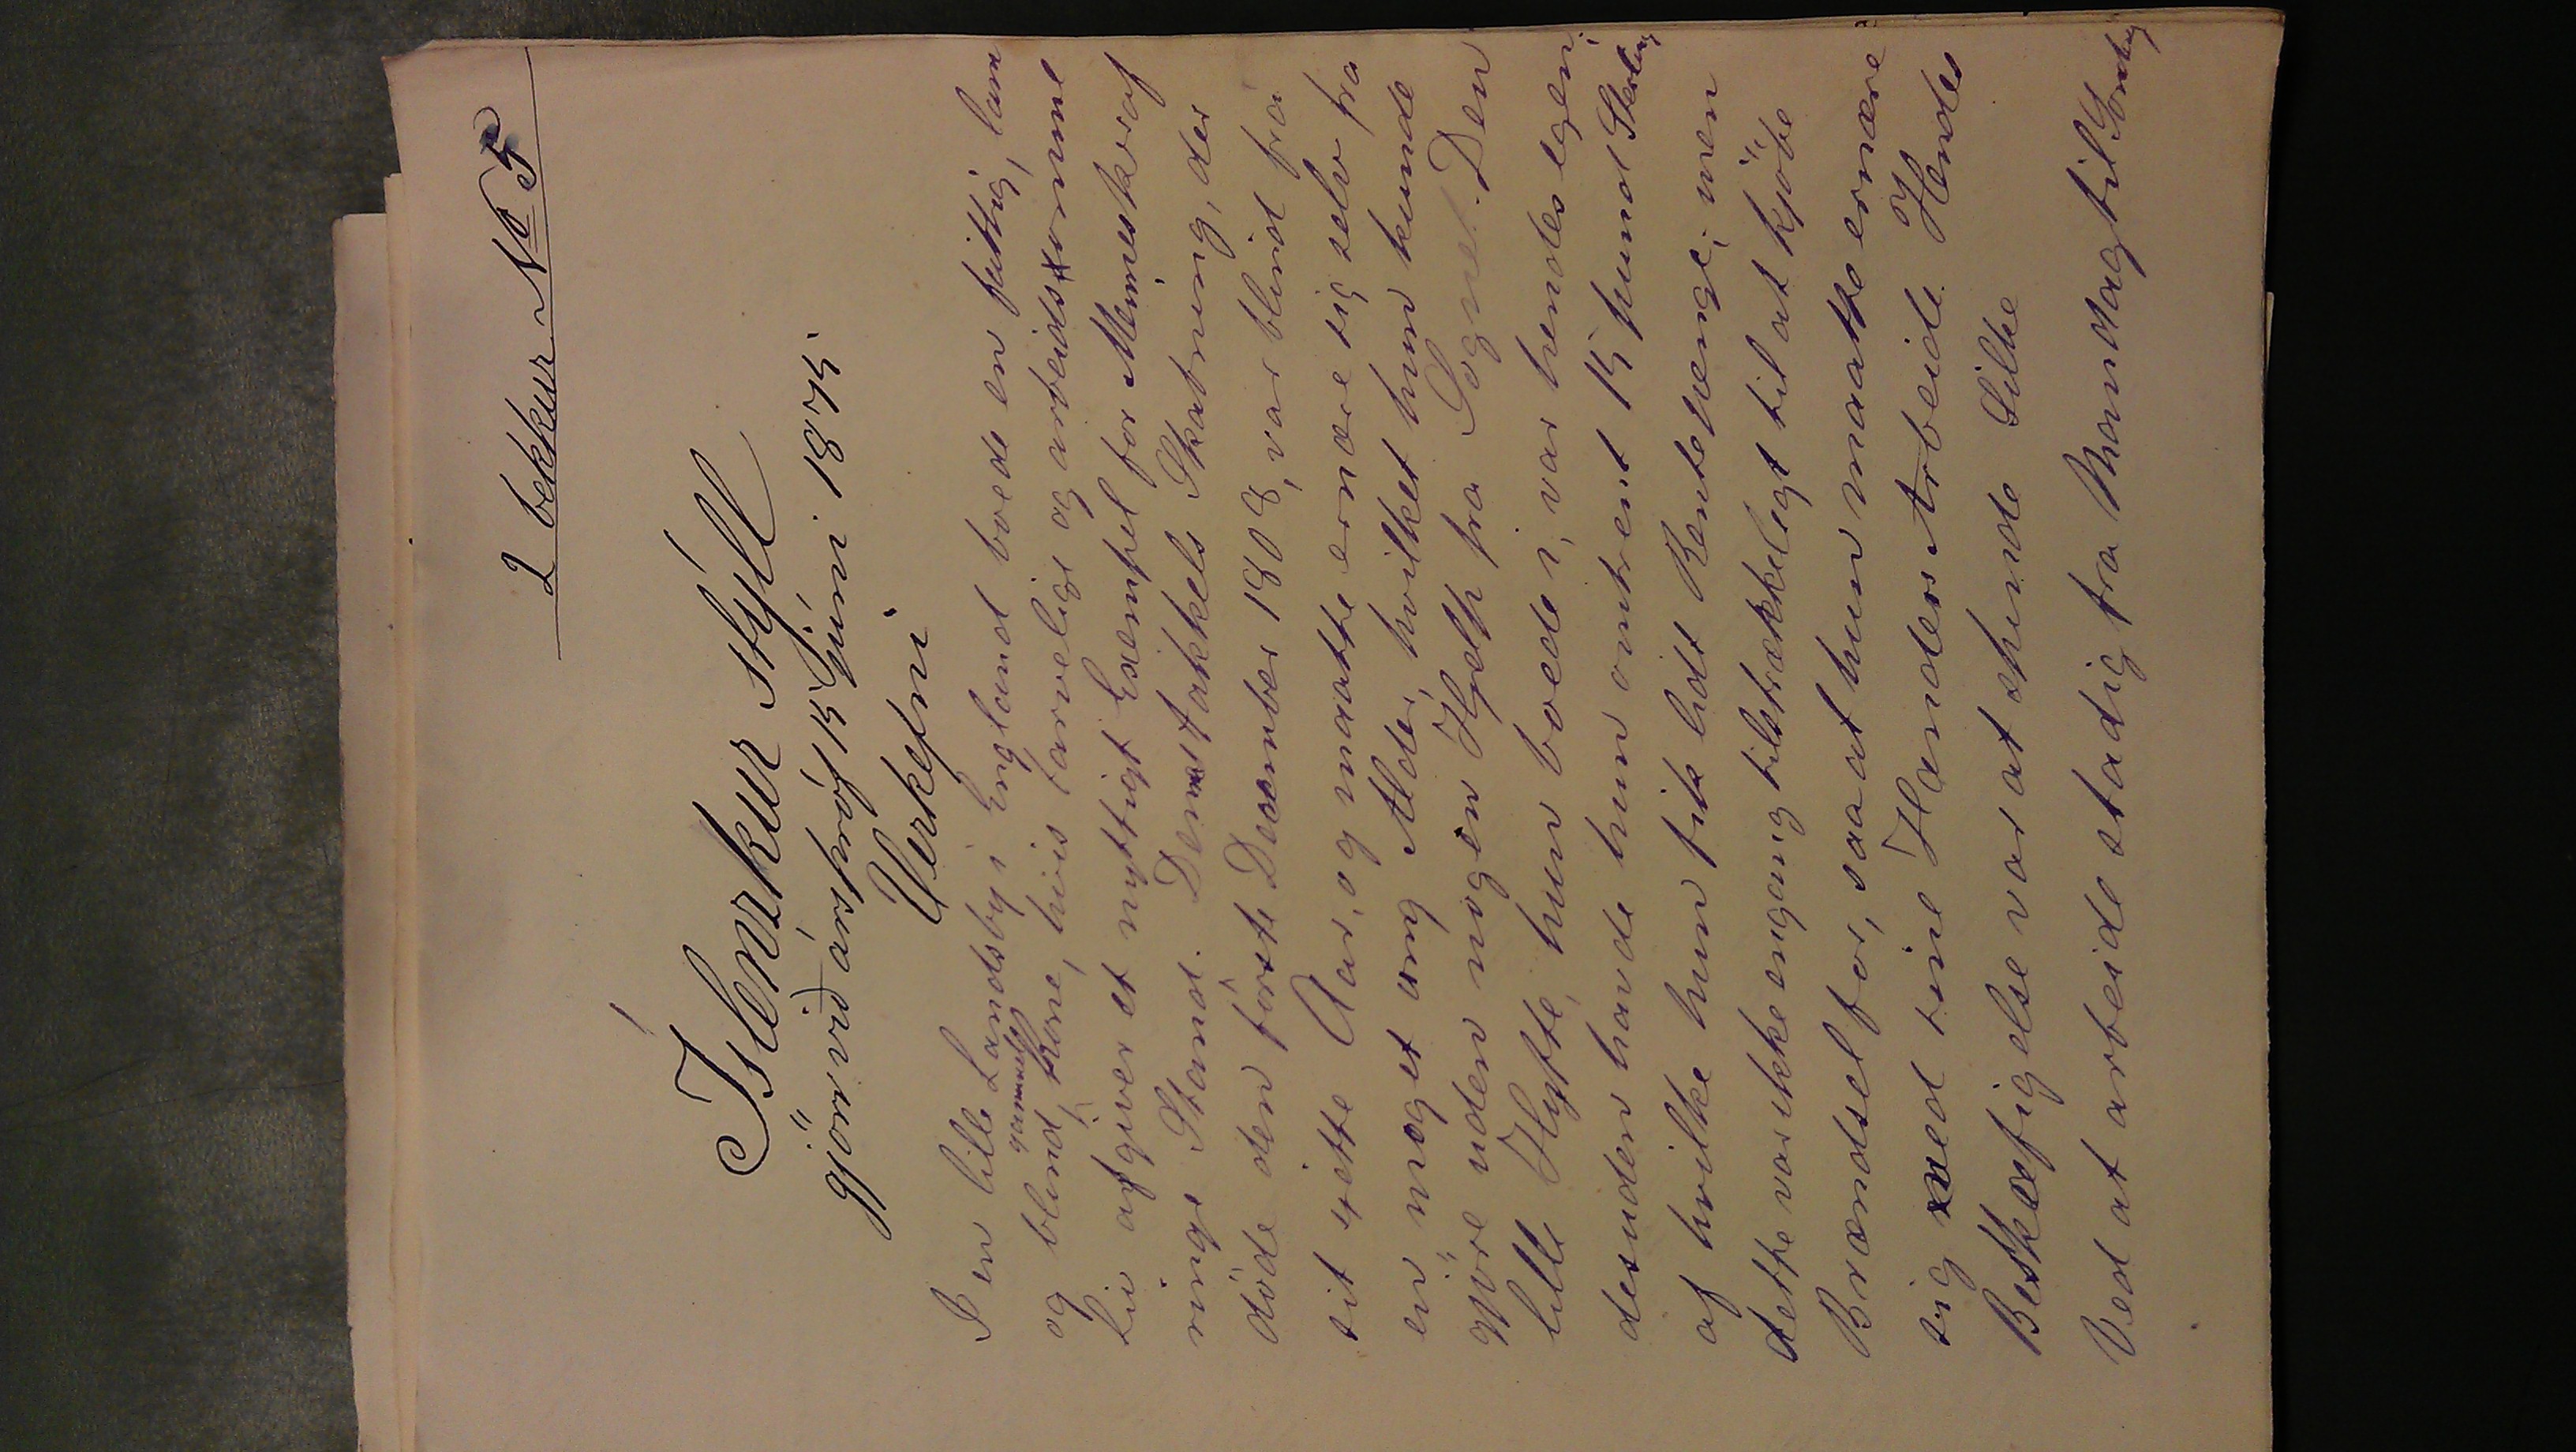 2 bekkur No 5
Íslenzkur stýll
gjörr við árspróf 15 Júni 1875
Verkefni
I en lille Landsby i England boede en fattig, lam
og blind, gammel Kone, hvis tarvelige og arbeidssomme
Liv afgiver et nyttigt Exempel for Mennesker af
ringe Stand. Denne stakkels Skabning, der
döde den förste December 1808, var blind fra
sit sjette Aar, og maatte ernære sig selv fra
en meget ung Alder, hvilket hun kunde
gjöre uden nogen Hjælp fra Sognet. Den
lille Hytte, hun boede i, var hendes egen;
desuden havde hun omtrent 15 pund Sterling
af hvilke hun fik lidt Rentepenge; men
dette var ikke engang tilstrækkeligt til at kjöbe
Brændsel for, saa at hun maatte ernære
sig ved sine Hænders Arbeide. Hendes
Beskæftigelse var at spinde Silke
Ved at arbeide stadig fra Mandag til Löverdag